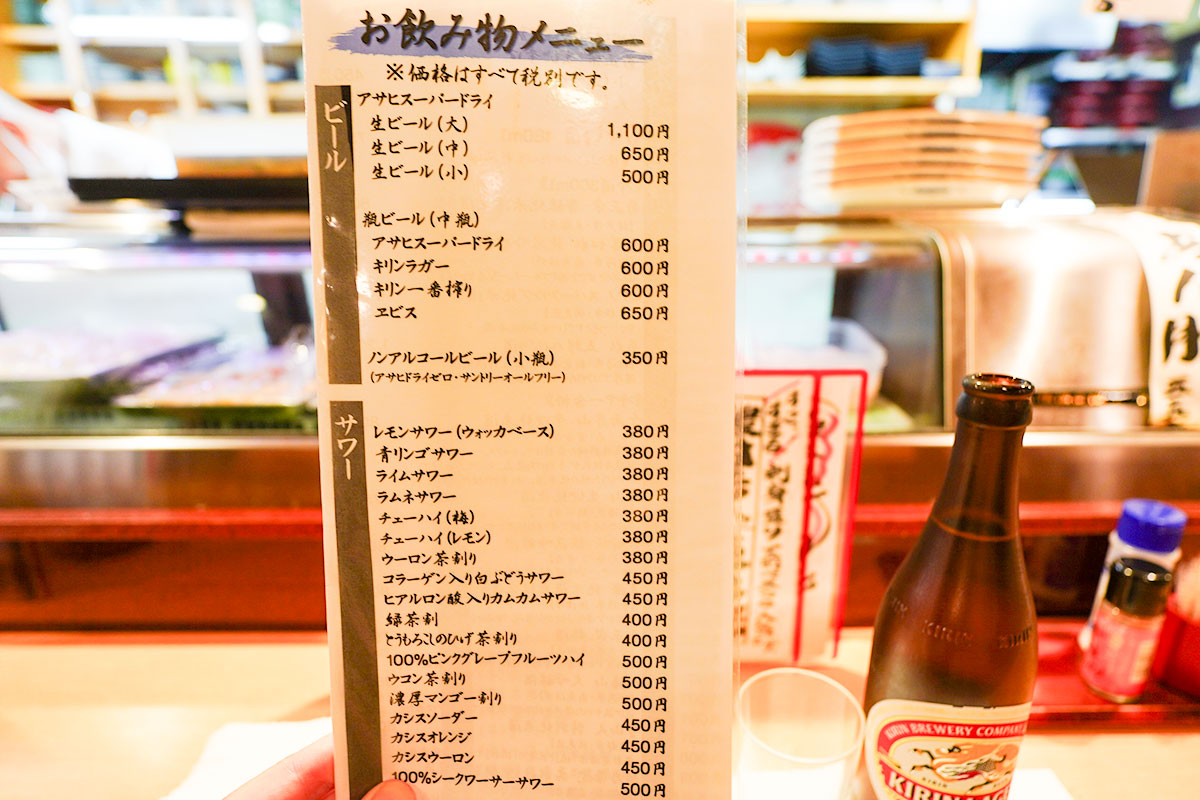 お飲み物メニュー
※価格はすべて税別です。
ビール
アサヒスーパードライ
生ビール(大) 1,100円
生ビール(中) 650円
生ビール(小) 500円
瓶ビール(中瓶)
アサヒスーパードライ 600円
キリンラガー 600円
キリン一番搾り 600円
ヱビス 650円
ノンアルコールビール(小瓶) 350円
(アサヒドライゼロ・サントリーオールフリー)
サワー
レモンサワー(ウォッカベース) 380円
青リンゴサワー 380円
ライムサワー 380円
ラムネサワー 380円
チューハイ(梅) 380円
チューハイ(レモン) 380円
ウーロン茶割り 380円
コラーゲン入り白ぶどうサワー 450円
ヒアルロン酸入りカムカムサワー 450円
緑茶割 400円
とうもろこしのひげ茶割り 400円
100%ピンクグレープフルーツハイ 500円
ウコン茶割り 500円
濃厚マンゴー割り 500円
カシスソーダー 450円
カシスオレンジ 450円
カシスウーロン 450円
100%シークワーサーサワー 500円
KIRIN KIRIN
KIRIN BREWERY COMPANY
KIRIN
KIRIN LAG